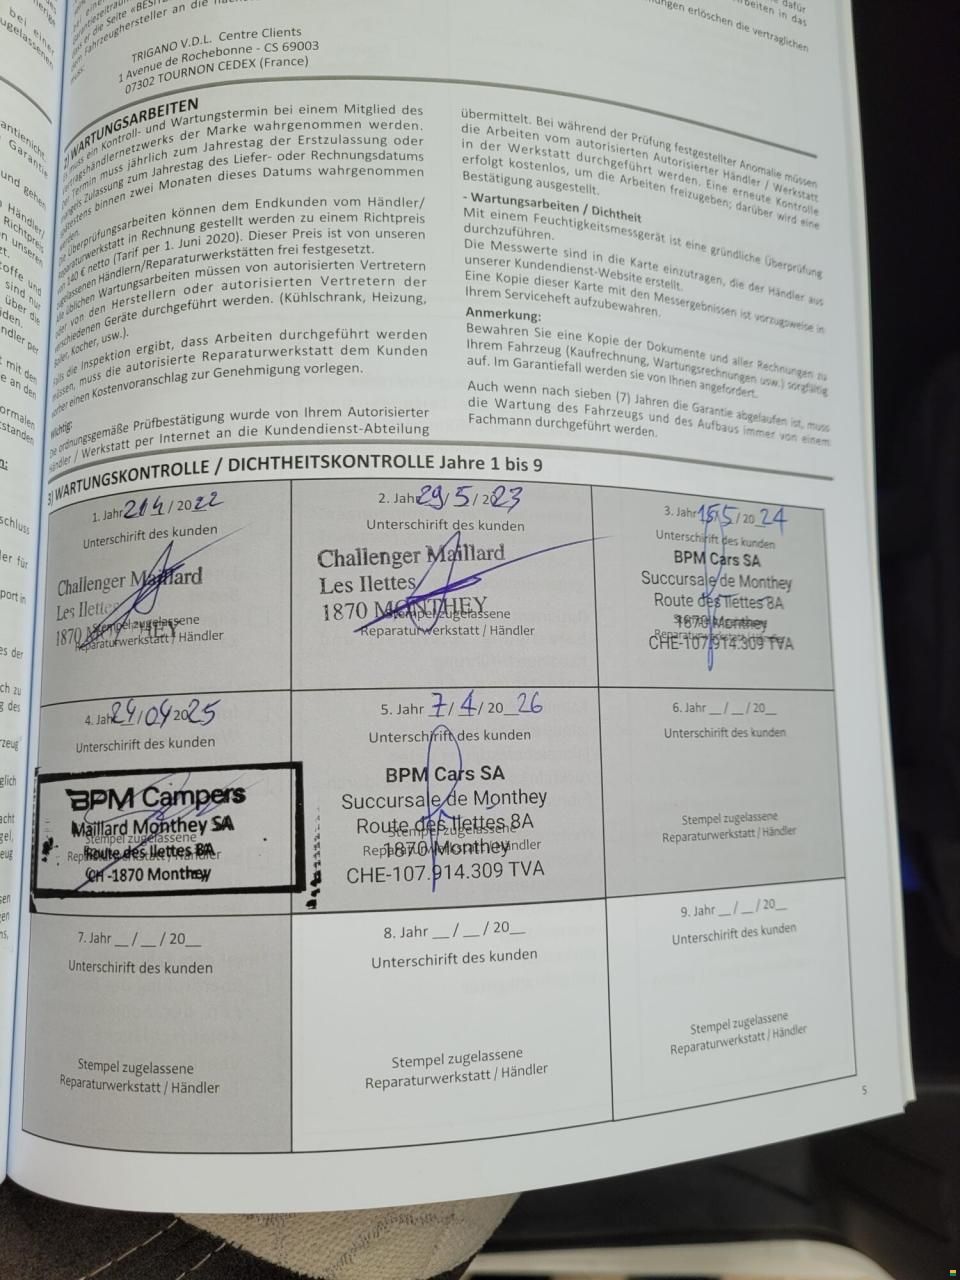 TRIGANO V.D.L. Centre Clients
1 Avenue de Rochebonne - CS 69003
07302 TOURNON CEDEX (France)
erlöschen die vertraglichen
2) WARTUNGSARBEITEN
muss ein Kontroll- und Wartungstermin bei einem Mitglied des
Vertragshändlernetzwerks der Marke wahrgenommen werden.
Der Termin muss jährlich zum Jahrestag der Erstzulassung oder
mangels Zulassung zum Jahrestag des Liefer- oder Rechnungsdatums
spätestens binnen zwei Monaten dieses Datums wahrgenommen
werden.
Die Überprüfungsarbeiten können dem Endkunden vom Händler/
Reparaturwerkstatt in Rechnung gestellt werden zu einem Richtpreis
von 140 € netto (Tarif per 1. Juni 2020). Dieser Preis ist von unseren
zugelassenen Händlern/Reparaturwerkstätten frei festgesetzt.
Alle üblichen Wartungsarbeiten müssen von autorisierten Vertretern
oder von den Herstellern oder autorisierten Vertretern der
verschiedenen Geräte durchgeführt werden. (Kühlschrank, Heizung,
Boiler, Kocher, usw.).
Falls die Inspektion ergibt, dass Arbeiten durchgeführt werden
müssen, muss die autorisierte Reparaturwerkstatt dem Kunden
vorher einen Kostenvoranschlag zur Genehmigung vorlegen.
Wichtig:
Die ordnungsgemäße Prüfbestätigung wurde von Ihrem Autorisierter
Händler / Werkstatt per Internet an die Kundendienst-Abteilung
übermittelt. Bei während der Prüfung festgestellter Anomalie müssen
die Arbeiten vom autorisierten Autorisierter Händler / Werkstatt
in der Werkstatt durchgeführt werden. Eine erneute Kontrolle
erfolgt kostenlos, um die Arbeiten freizugeben; darüber wird eine
Bestätigung ausgestellt.
- Wartungsarbeiten / Dichtheit
Mit einem Feuchtigkeitsmessgerät ist eine gründliche Überprüfung
durchzuführen.
Die Messwerte sind in die Karte einzutragen, die der Händler aus
unserer Kundendienst-Website erstellt.
Eine Kopie dieser Karte mit den Messergebnissen ist vorzugsweise in
Ihrem Serviceheft aufzubewahren.
Anmerkung:
Bewahren Sie eine Kopie der Dokumente und aller Rechnungen zu
Ihrem Fahrzeug (Kaufrechnung, Wartungsrechnungen usw.) sorgfältig
auf. Im Garantiefall werden sie von Ihnen angefordert.
Auch wenn nach sieben (7) Jahren die Garantie abgelaufen ist, muss
die Wartung des Fahrzeugs und des Aufbaus immer von einem
Fachmann durchgeführt werden.
3) WARTUNGSKONTROLLE / DICHTHEITSKONTROLLE Jahre 1 bis 9
1. Jahr 21/4 / 2022
Unterschirift des kunden
Challenger Maillard
Les Ilettes
1870 MONTHEY
Stempel zugelassene
Reparaturwerkstatt / Händler
2. Jahr 29/5 / 2023
Unterschirift des kunden
Challenger Maillard
Les Ilettes
1870 MONTHEY
Stempel zugelassene
Reparaturwerkstatt / Händler
3. Jahr 15/5 / 20 24
Unterschirift des kunden
BPM Cars SA
Succursale de Monthey
Route des Ilettes 8A
1870 Monthey
CHE-107.914.309 TVA
4. Jahr 24/04/2025
Unterschirift des kunden
BPM Campers
Maillard Monthey SA
Stempel zugelassene
Route des Ilettes 8A
Reparaturwerkstatt / Händler
CH-1870 Monthey
5. Jahr 7 / 4 / 20 26
Unterschirift des kunden
BPM Cars SA
Succursale de Monthey
Route des Ilettes 8A
Stempel zugelassene
1870 Monthey
Reparaturwerkstatt / Händler
CHE-107.914.309 TVA
6. Jahr __ / __ / 20__
Unterschirift des kunden
Stempel zugelassene
Reparaturwerkstatt / Händler
7. Jahr __ / __ / 20__
Unterschirift des kunden
Stempel zugelassene
Reparaturwerkstatt / Händler
8. Jahr __ / __ / 20__
Unterschirift des kunden
Stempel zugelassene
Reparaturwerkstatt / Händler
9. Jahr __ / __ / 20__
Unterschirift des kunden
Stempel zugelassene
Reparaturwerkstatt / Händler
5